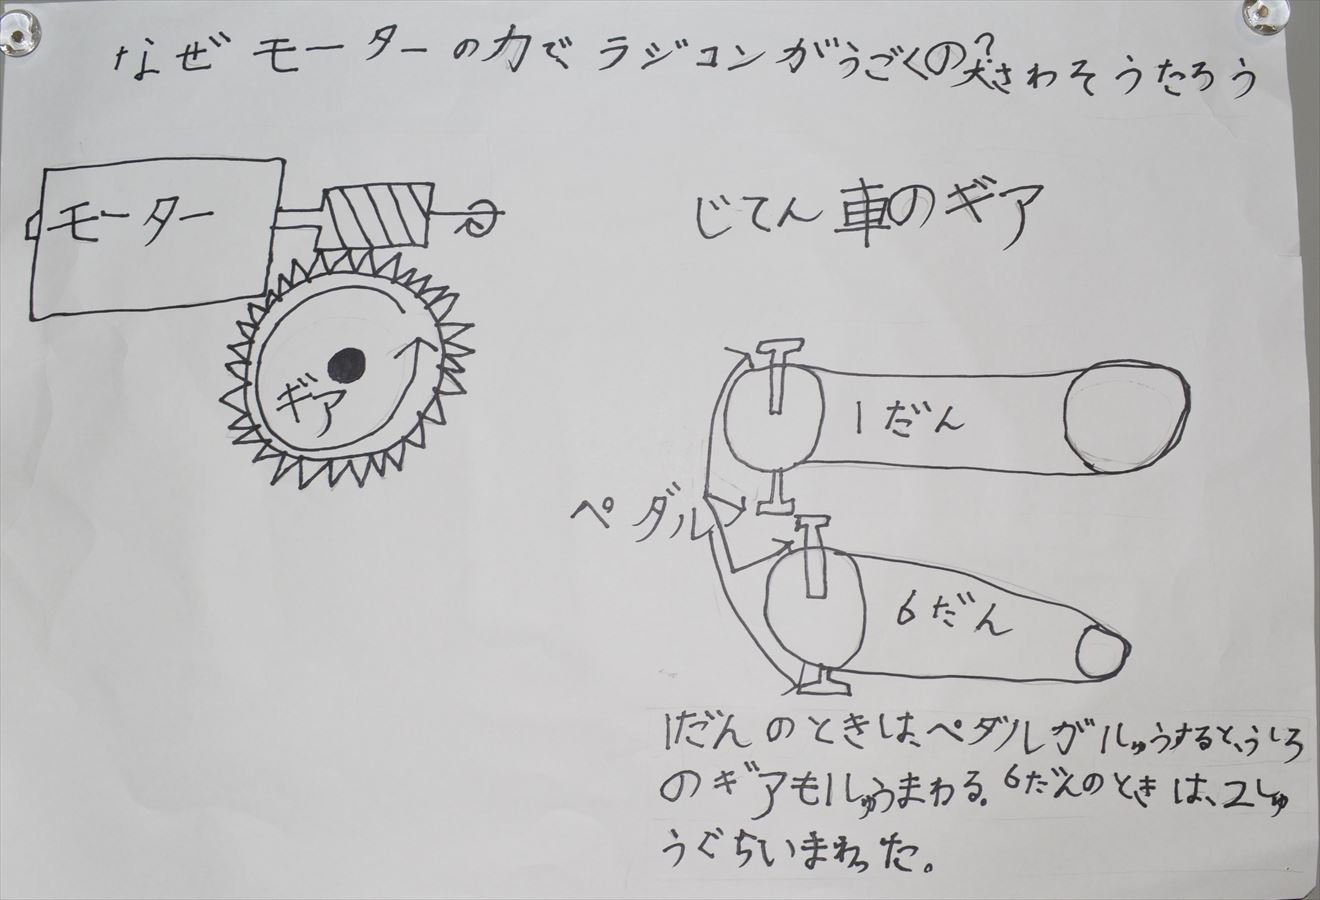 なぜモーターの力でラジコンがうごくの?
大さわそうたろう
モーター
ギア
じてん車のギア
1だん
ペダル
6だん
1だんのときは、ペダルが1しゅうすると、うしろ
のギアも1しゅうまわる。6だんのときは、2しゅ
うぐらいまわった。